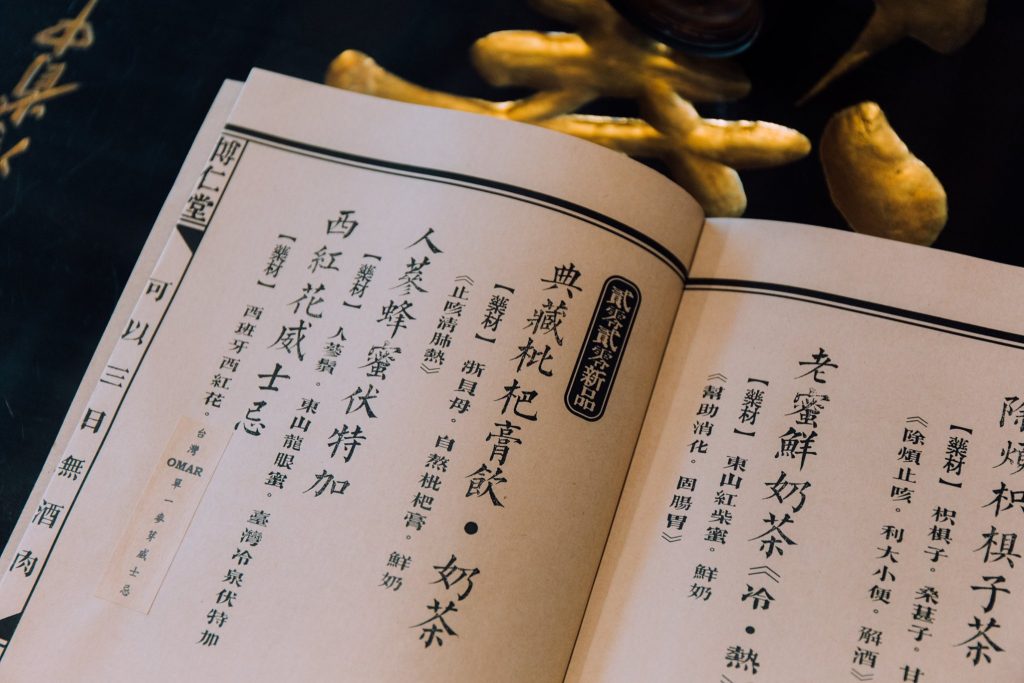 除煩枳椇子茶
【藥材】枳椇子。桑葚子。甘
《除煩止咳。利大小便。解酒》
老蜜鮮奶茶《冷・熱
【藥材】東山紅柴蜜。鮮奶
《幫助消化。固腸胃》
貳零貳零新品
典藏枇杷膏飲・奶茶
【藥材】浙貝母。自熬枇杷膏。鮮奶
《止咳清肺熱》
人蔘蜂蜜伏特加
【藥材】人蔘鬚。東山龍眼蜜。臺灣冷泉伏特加
西紅花威士忌
【藥材】西班牙西紅花。
台灣OMAR單一麥芽威士忌
博仁堂
可以三日無酒肉